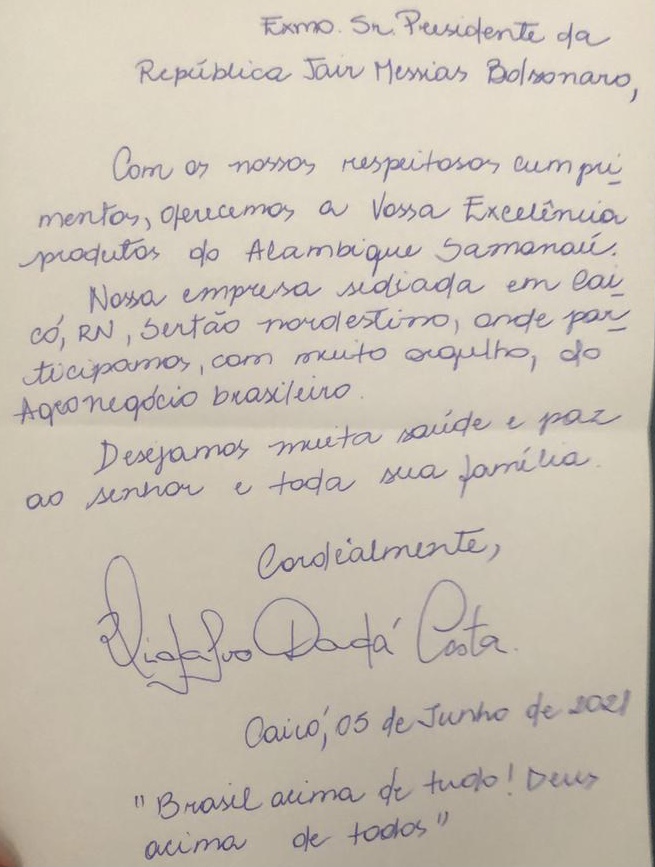 Exmo. Sr. Presidente da
República Jair Messias Bolsonaro,
Com os nossos respeitosos cumpri-
mentos, oferecemos a Vossa Excelência
produtos do Alambique Samanaú.
Nossa empresa sediada em Cai-
có, RN, Sertão nordestino, onde par-
ticipamos, com muito orgulho, do
Agronegócio brasileiro.
Desejamos muita saúde e paz
ao senhor e toda sua família.
Cordialmente,
Dadá Costa.
Caicó, 05 de Junho de 2021
"Brasil acima de tudo! Deus
acima de todos"